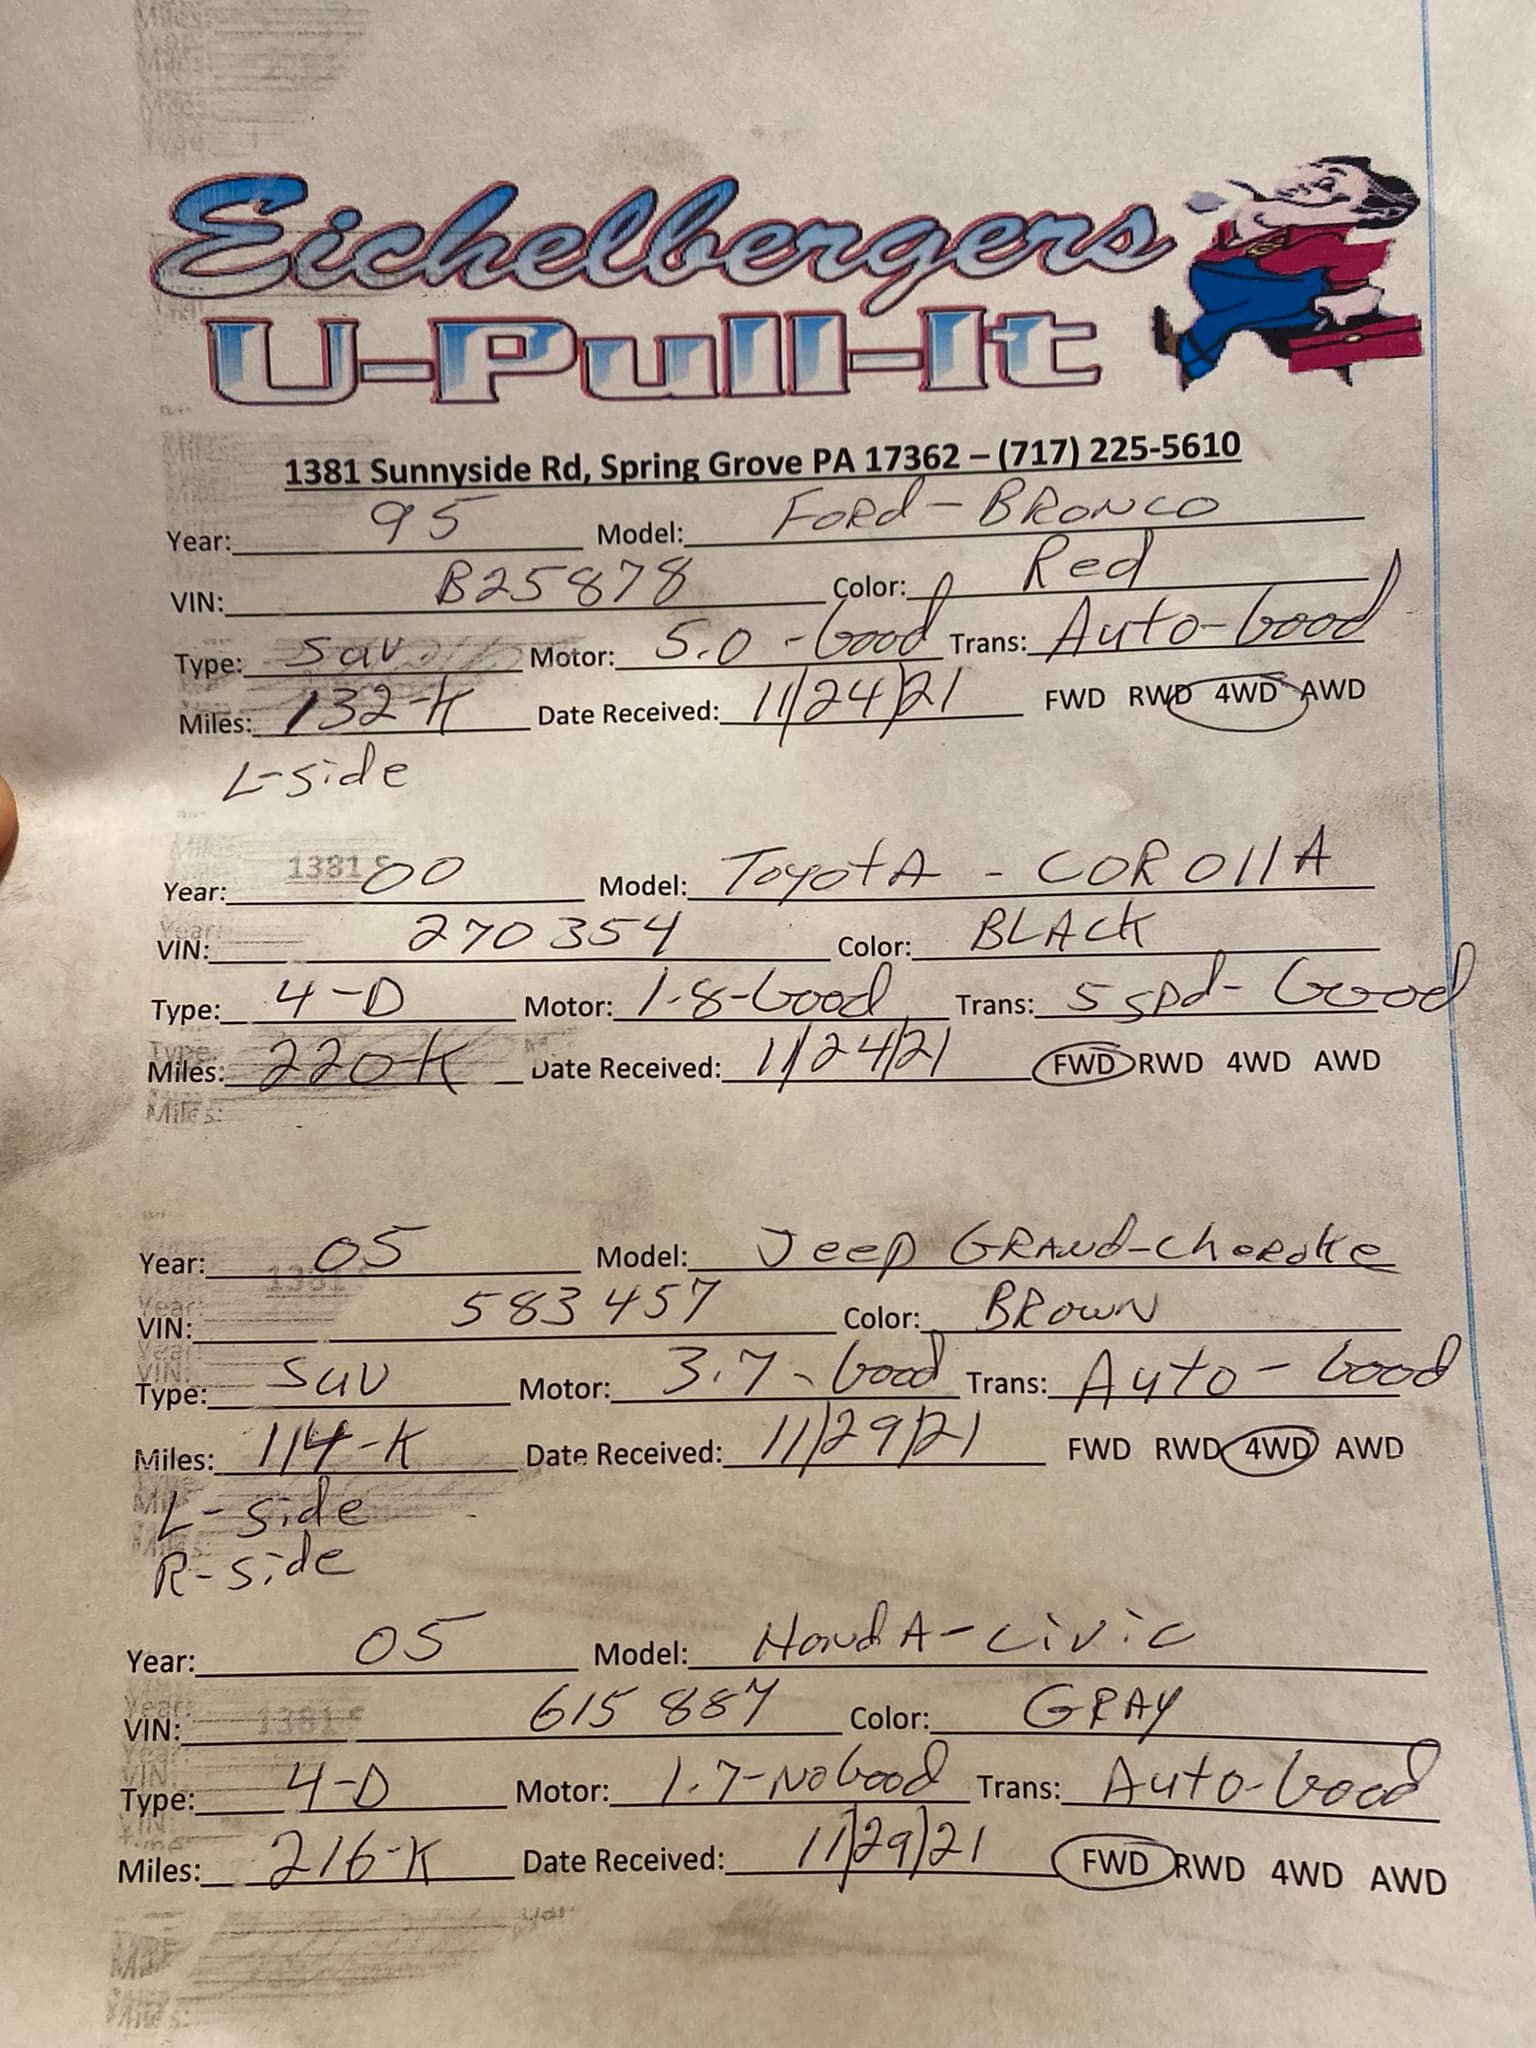 Eichelbergers
U-Pull-It
1381 Sunnyside Rd, Spring Grove PA 17362 – (717) 225-5610
Year: 95 Model: Ford - BRONCO
VIN: B25878 Color: Red
Type: SUV Motor: 5.0 - Good Trans: Auto - Good
Miles: 132-K Date Received: 11/24/21 FWD RWD 4WD AWD
L-side
Year: 00 Model: ToyotA - COROllA
VIN: 270354 Color: BLACK
Type: 4-D Motor: 1.8 - Good Trans: 5 spd - Good
Miles: 220-K Date Received: 11/24/21 FWD RWD 4WD AWD
Miles:
Year: 05 Model: Jeep GRANd-CheRoKe
VIN: 583457 Color: BROWN
Type: SUV Motor: 3.7 - Good Trans: Auto - Good
Miles: 114-K Date Received: 11/29/21 FWD RWD 4WD AWD
L-side
R-side
Year: 05 Model: HondA - CiViC
VIN: 615887 Color: GRAY
Type: 4-D Motor: 1.7 - No Good Trans: Auto - Good
Miles: 216-K Date Received: 11/29/21 FWD RWD 4WD AWD